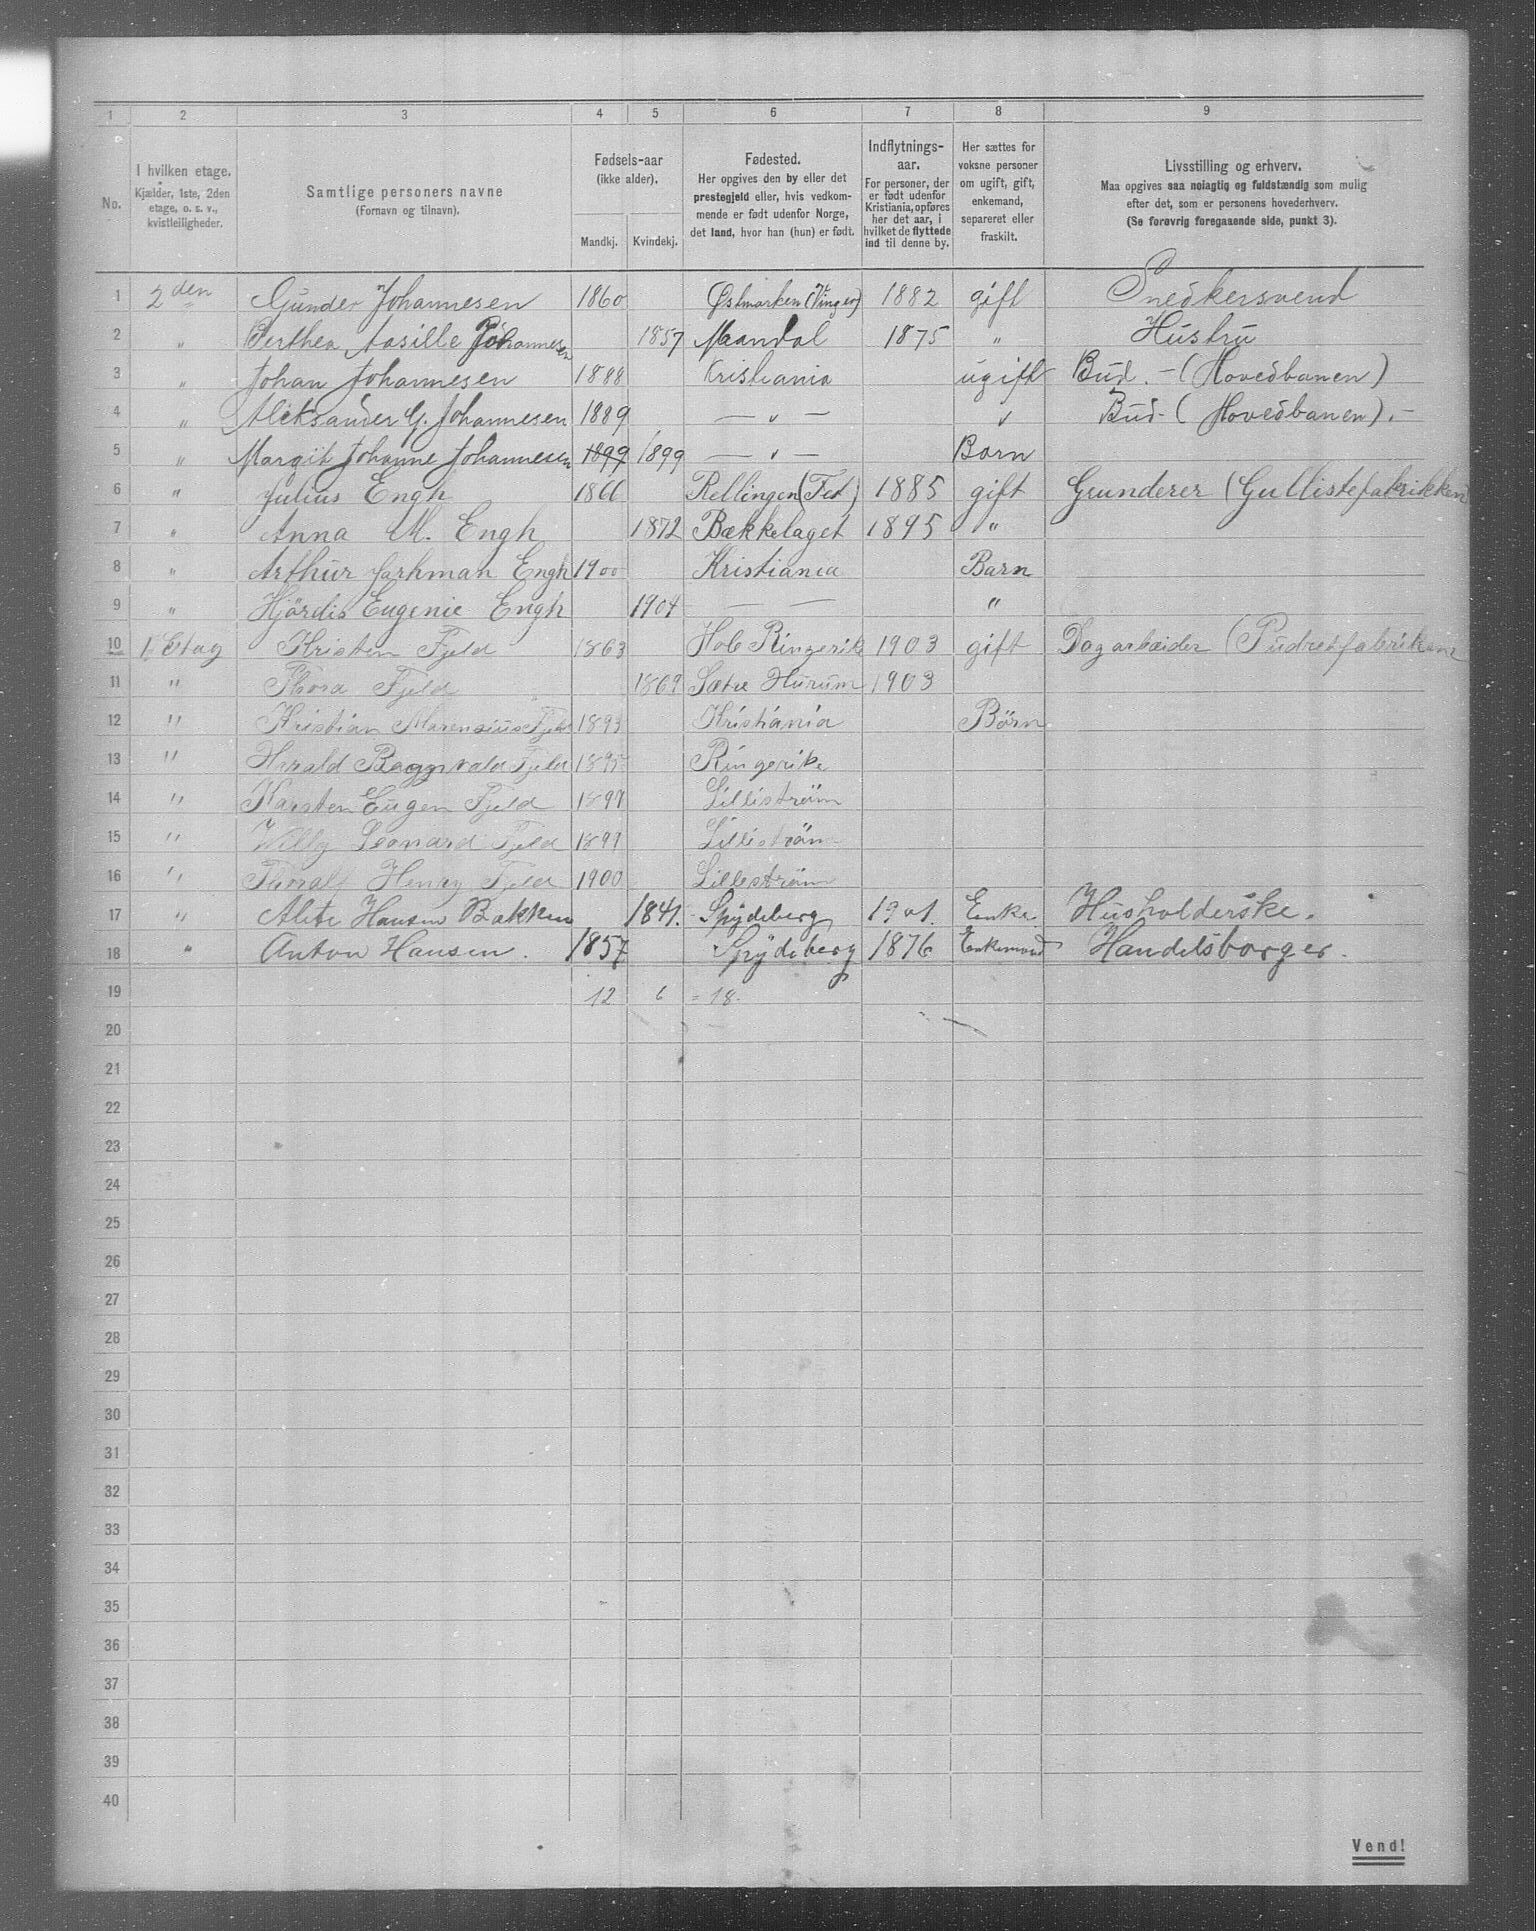 1 2 3 4 5 6 7 8 9
No. I hvilken etage. Kjælder, 1ste, 2den etage, o. s. v., kvistleiligheder. Samtlige personers navne (Fornavn og tilnavn). Fødsels-aar (ikke alder). Mandkj. Kvindekj. Fødested. Her opgives den by eller det prestegjeld eller, hvis vedkommende er født udenfor Norge, det land, hvor han (hun) er født. Indflytnings-aar. For personer, der er født udenfor Kristiania, opføres her det aar, i hvilket de flyttede ind til denne by. Her sættes for voksne personer om ugift, gift, enkemand, separeret eller fraskilt. Livsstilling og erhverv. Maa opgives saa nøiagtig og fuldstændig som mulig efter det, som er personens hovederhverv. (Se forøvrig foregaaende side, punkt 3).
1 2den Gunder Johannesen 1860 Østmarken (Vinger) 1882 gift Snedkersvend
2 " Berthea Aasille Johannesen 1857 Mandal 1875 " Hustru
3 " Johan Johannesen 1888 Kristiania ugift Bud. - (Hovedbanen)
4 " Aleksander G. Johannesen 1889 — " — " Bud - (Hovedbanen). -
5 " Margit Johanne Johannesen 1899 1899 — " — Barn
6 " Julius Engh 1866 Rellingen (Fet) 1885 gift Grunderer (Gullistefabrikken)
7 " Anna M. Engh 1872 Bækkelaget 1895 "
8 " Arthur Engh 1900 Kristiania Barn
9 " Hjördis Eugenie Engh 1904 — — "
10 1. Etag Kristen Fjeld 1863 Hole Ringerike 1903 gift Dagarbeider (Pudretfabriken
11 " Thora Fjeld 1869 Sætre Hurum 1903
12 " Kristian Marensius Fjeld 1893 Kristiania Börn
13 " Harald Fjeld 1895 Ringerike
14 " Karsten Eugen Fjeld 1897 Lilliström
15 " Willy Leonard Fjeld 1899 Lilliström
16 " Thoralf Henry Fjeld 1900 Lilleström
17 " Alete Hansen Bakken 1841. Spydeberg 1901. Enke Husholderske.
18 " Anton Hansen. 1857 Spydeberg 1876 Enkemand Handelsborger.
19 12 6 = 18.
20
21
22
23
24
25
26
27
28
29
30
31
32
33
34
35
36
37
38
39
40
Vend!